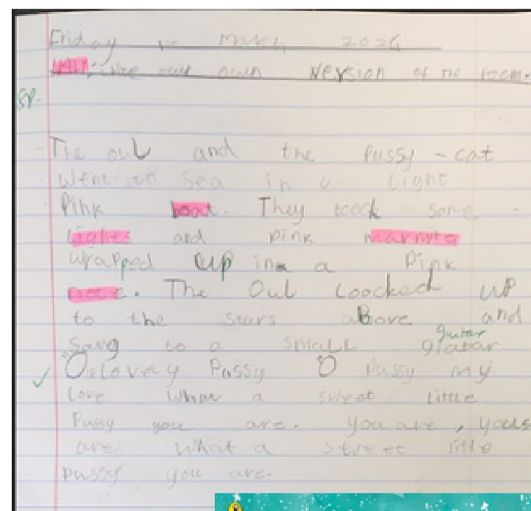 Friday March 2024
write our own version of the poem.
SP.
The oul and the Pussy-cat
went to sea in a light
Pink boat. They toock some
lights and pink marmite
wrapped up in a Pink
The Oul loocked up
to the stars above and
guitar
Sang to a small
O lovely Pussy O Pussy my
love what a sweet little
Pussy you are. you are, you
are what a sweet little
pussy you are.